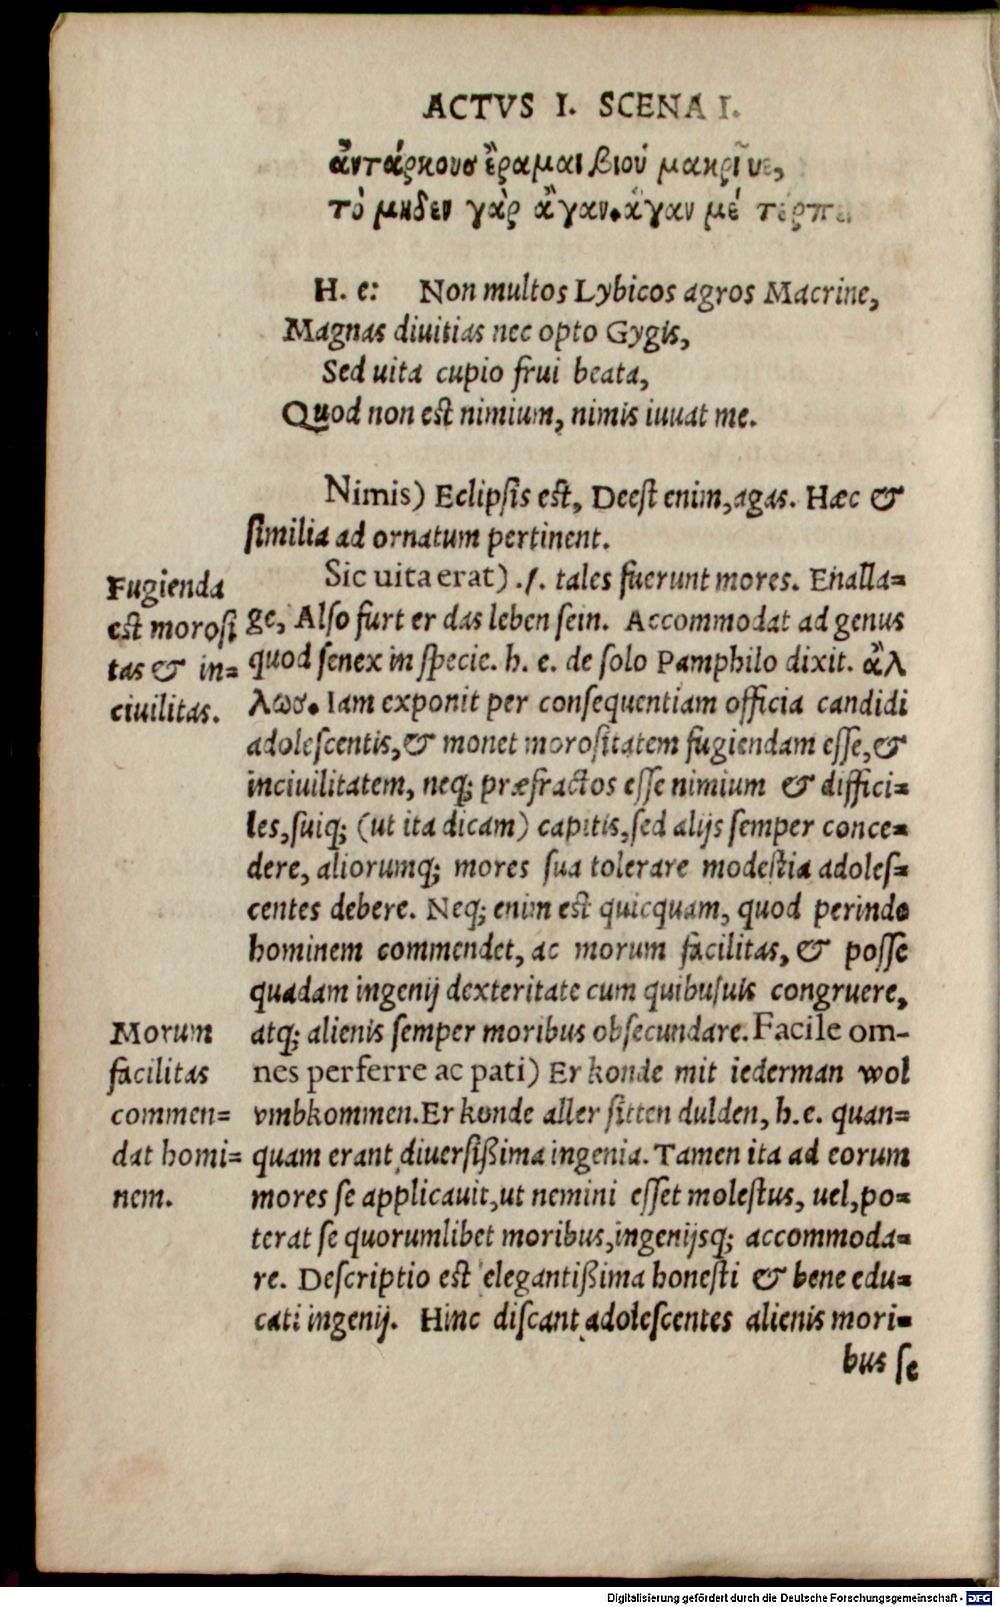 ACTVS I. SCENA I.
ἀντάρκουσ ἔραμαι βιού μακρῖνε,
τὸ μηδεν γὰρ ἄγαν. ἄγαν μέ τέρπε.
H. e: Non multos Lybicos agros Macrine,
Magnas diuitias nec opto Gygis,
Sed uita cupio frui beata,
Quod non est nimium, nimis iuuat me.
Nimis) Eclipsis est, Deest enim, agas. Hæc &
similia ad ornatum pertinent.
Sic uita erat) .ſ. tales fuerunt mores. Enalla=
ge, Also furt er das leben sein. Accommodat ad genus
quod senex in specie. h. e. de solo Pamphilo dixit. ἄλ
λωσ. Iam exponit per consequentiam officia candidi
adolescentis, & monet morositatem fugiendam esse, &
inciuilitatem, neq; præfractos esse nimium & diffici=
les, suiq; (ut ita dicam) capitis, sed alijs semper conce=
dere, aliorumq; mores sua tolerare modestia adoles=
centes debere. Neq; enim est quicquam, quod perinde
hominem commendet, ac morum facilitas, & posse
quadam ingenij dexteritate cum quibusuis congruere,
atq; alienis semper moribus obsecundare. Facile om-
nes perferre ac pati) Er konde mit iederman wol
vmbkommen. Er konde aller sitten dulden, h.e. quan=
quam erant diuersißima ingenia. Tamen ita ad eorum
mores se applicauit, ut nemini esset molestus, uel, po=
terat se quorumlibet moribus, ingenijsq; accommoda=
re. Descriptio est elegantißima honesti & bene edu=
cati ingenij. Hinc discant adolescentes alienis mori=
bus se
Fugienda
est morosi
tas & in=
ciuilitas.
Morum
facilitas
commen=
dat homi=
nem.
Digitalisierung gefördert durch die Deutsche Forschungsgemeinschaft - DFG